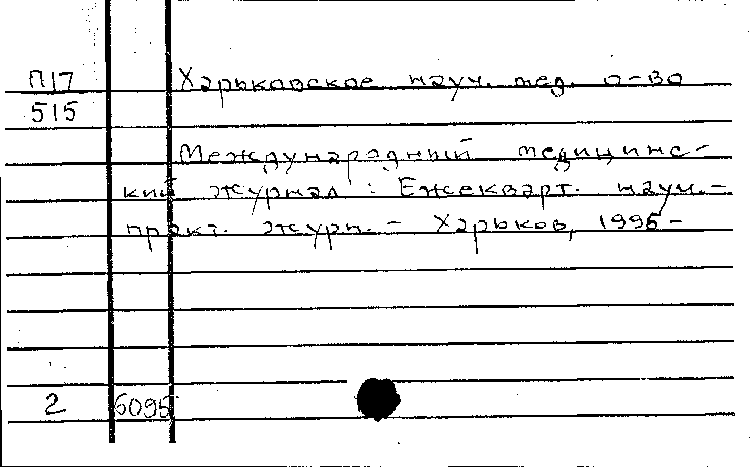 П17 Харьковское науч. мед. о-во
515
Международный медицинс-
кий журнал : Ежекварт. науч.-
практ. журн. - Харьков, 1995-
2 6095